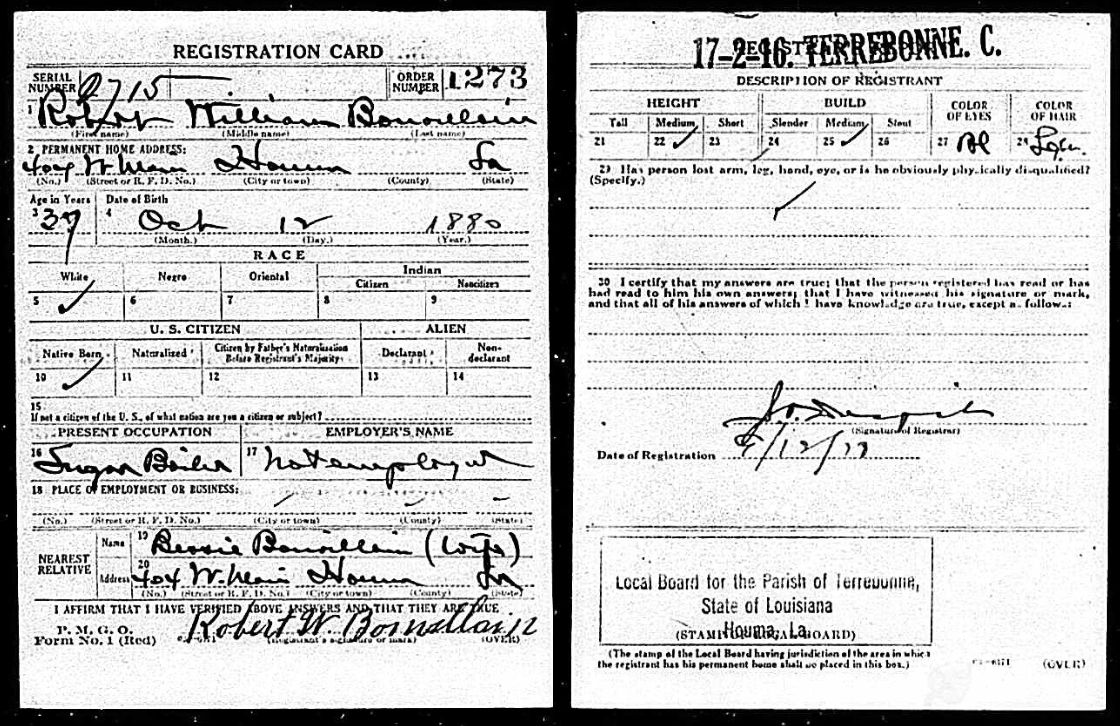 REGISTRATION CARD
SERIAL NUMBER 715 ORDER NUMBER 1273
1 Robert William Bonvillain
(First name) (Middle name) (Last name)
2 PERMANENT HOME ADDRESS:
404 W. Main Houma La
(No.) (Street or R. F. D. No.) (City or town) (County) (State)
Age in Years Date of Birth
3 37 4 Oct 12 1880
(Month.) (Day.) (Year.)
RACE
White Negro Oriental Indian
Citizen Noncitizen
5 ✓ 6 7 8 9
U. S. CITIZEN ALIEN
Native Born Naturalized Citizen by Father's Naturalization Before Registrant's Majority Declarant Non-declarant
10 ✓ 11 12 13 14
15
If not a citizen of the U. S., of what nation are you a citizen or subject?
PRESENT OCCUPATION EMPLOYER'S NAME
16 Sugar Boiler 17 Not employed
18 PLACE OF EMPLOYMENT OR BUSINESS:
(No.) (Street or R. F. D. No.) (City or town) (County) (State)
NEAREST RELATIVE Name 19 Bessie Bonvillain (wife)
Address 20 404 W. Main Houma La
(No.) (Street or R. F. D. No.) (City or town) (County) (State)
I AFFIRM THAT I HAVE VERIFIED ABOVE ANSWERS AND THAT THEY ARE TRUE
P. M. G. O.
Form No. 1 (Red) Robert W. Bonvillain
(Registrant's signature or mark) (OVER)
17-2-16. TERREBONNE. C.
DESCRIPTION OF REGISTRANT
HEIGHT BUILD COLOR OF EYES COLOR OF HAIR
Tall Medium Short Slender Medium Stout
21 22 ✓ 23 24 25 ✓ 26 27 Bl 28
29 Has person lost arm, leg, hand, eye, or is he obviously physically disqualified?
(Specify.)
✓
30 I certify that my answers are true; that the person registered has read or has
had read to him his own answers; that I have witnessed his signature or mark,
and that all of his answers of which I have knowledge are true, except as follows:
(Signature of Registrar)
Date of Registration 9/12/18
Local Board for the Parish of Terrebonne,
State of Louisiana
Houma, La.
(STAMP OF LOCAL BOARD)
(The stamp of the Local Board having jurisdiction of the area in which
the registrant has his permanent home shall be placed in this box.)
(OVER)